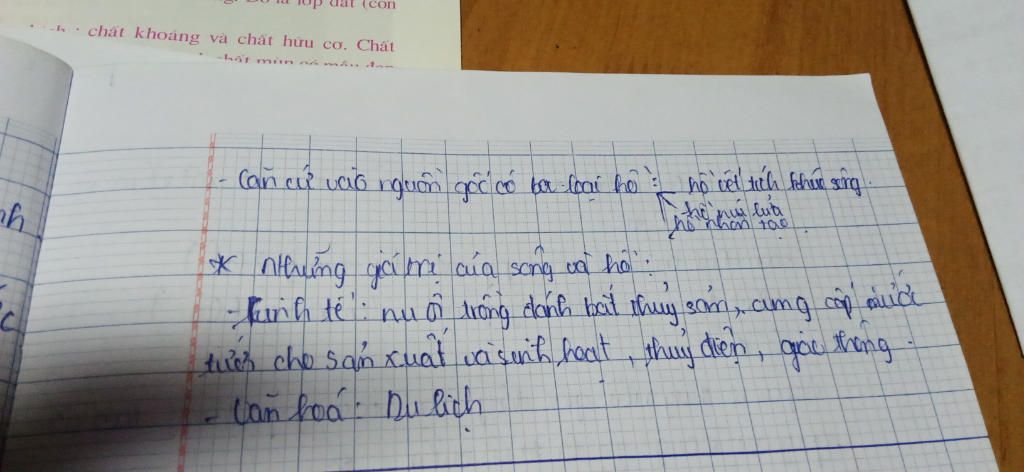 lớp đất (con
chất khoáng và chất hữu cơ. Chất
chất mùn có màu đen
- Căn cứ vào nguồn gốc có ba loại hồ: hồ vết tích khúc sông.
hồ núi lửa
hồ nhân tạo
* Những giá trị của sông và hồ:
- Kinh tế: nuôi trồng đánh bắt thủy sản, cung cấp nước
tưới cho sản xuất và sinh hoạt, thuỷ điện, giao thông.
- Văn hoá: Du lịch